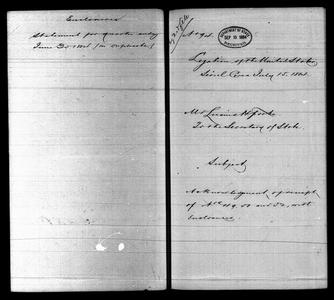 Enclosures
Statement for quarter ending
June 30 1884 (in duplicate)
DEPARTMENT OF STATE
SEP 10 1884
Legation of the United States
Seoul Corea July 15. 1884.
Mr Lucius H. Foote
To the Secretary of State.
Subject
Acknowledgment of receipt
of Nos 49, 50 and 52, with
enclosures